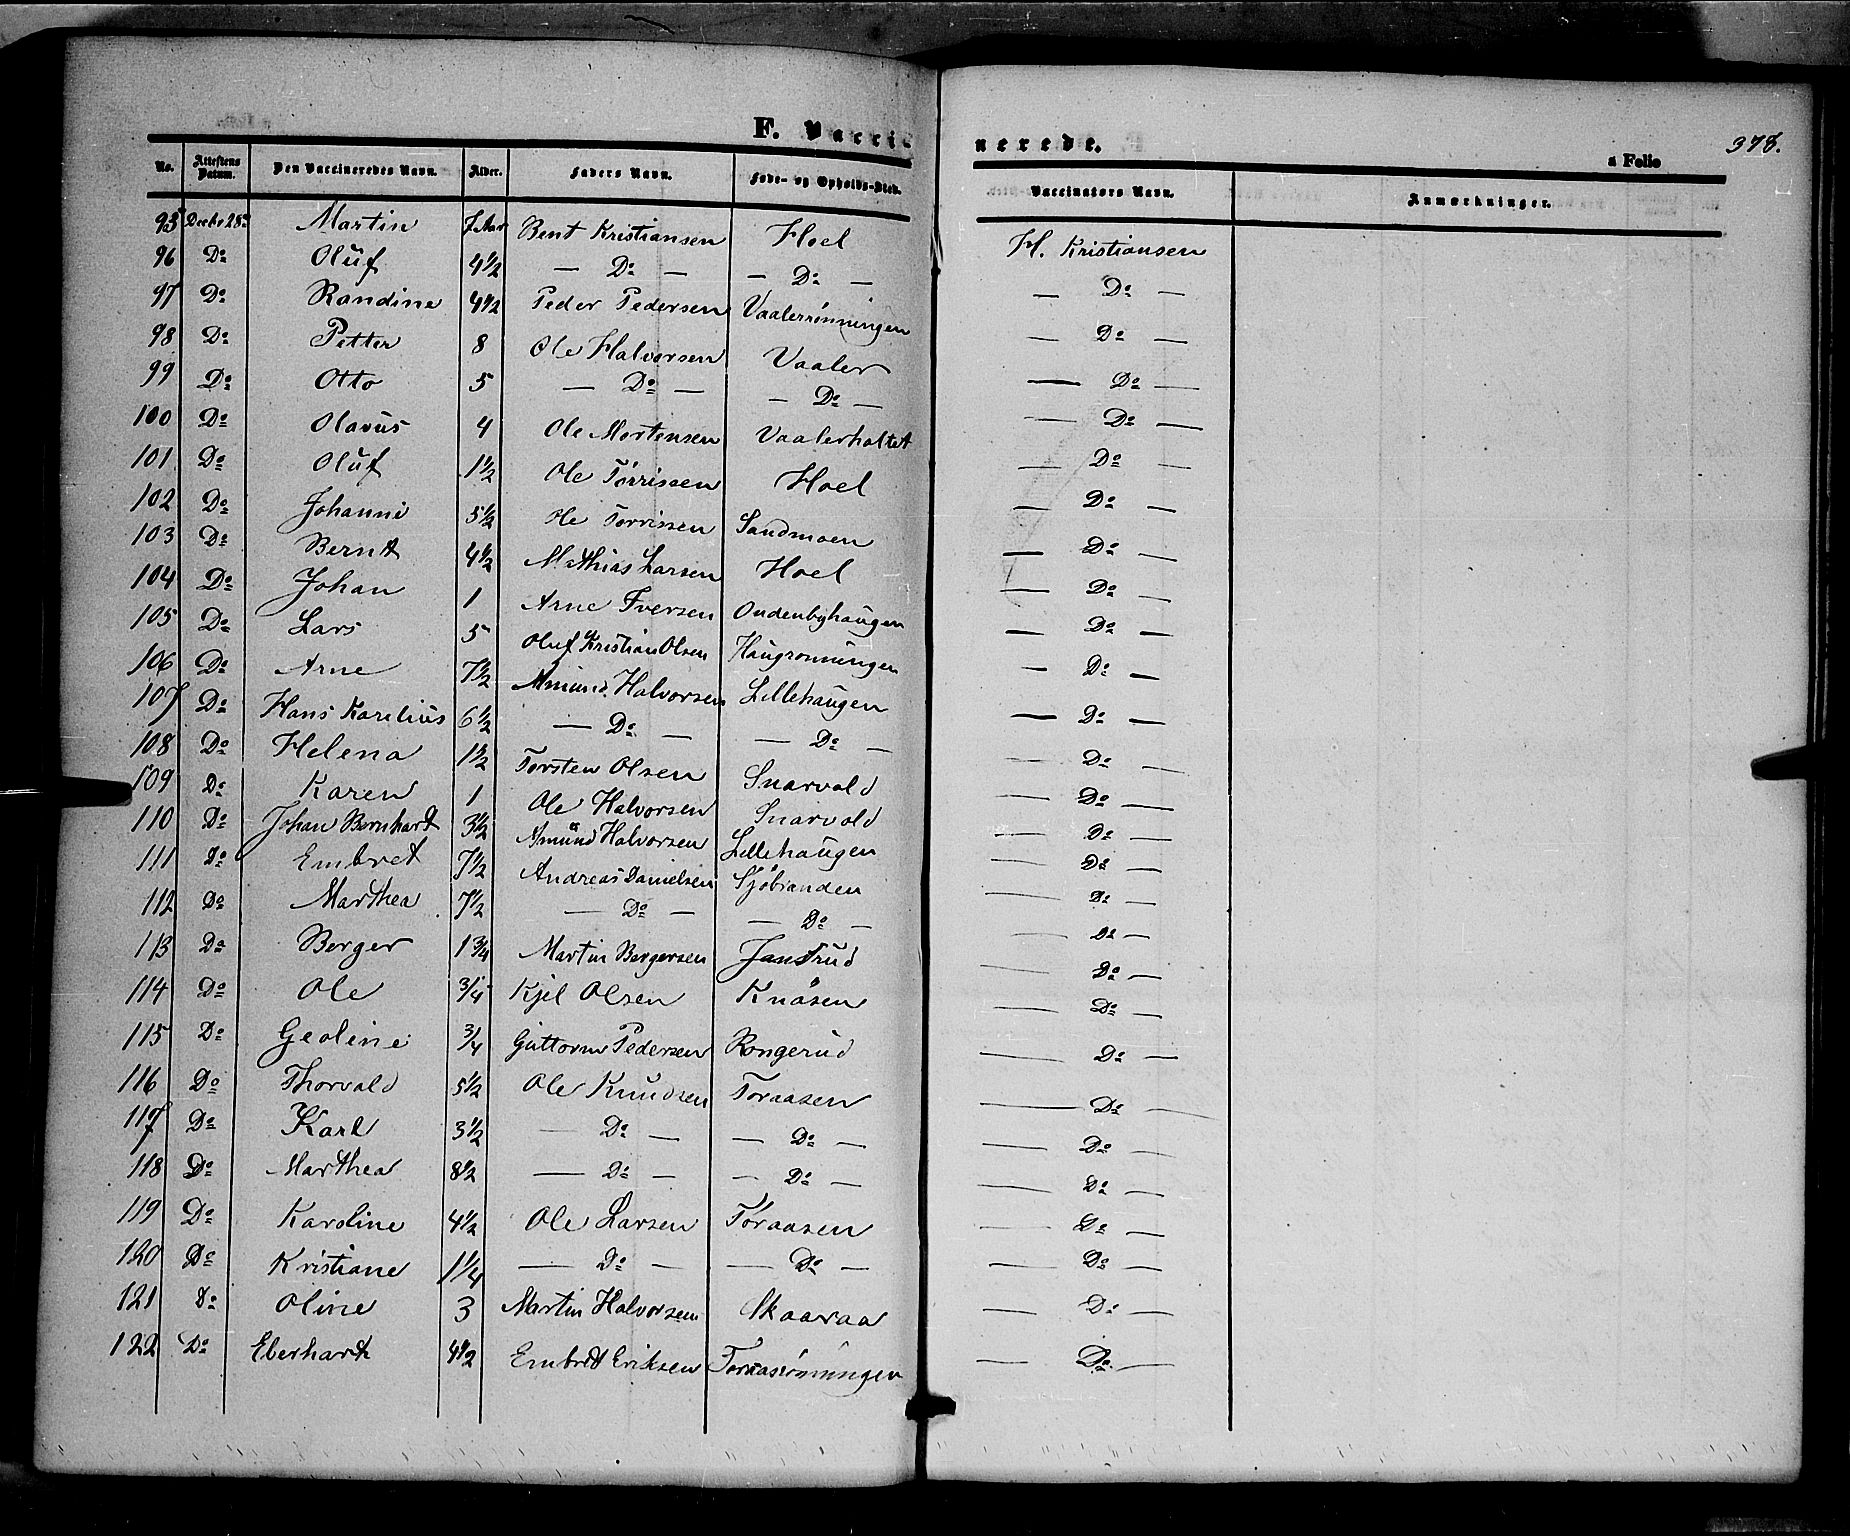 F. Vaccinerede.
a Folio 378.
No. Attestens Datum. Den Vaccineredes Navn. Alder. Faders Navn. Føde- og Opholds-Sted. Vaccinators Navn. Anmærkninger.
95 Decbr 28de Martin 7 Aar Bent Kristiansen Hoel H. Kristiansen
96 Do Oluf 4 1/2 — Do — — Do — — Do —
97 Do Randine 4 1/2 Peder Pedersen Vaalerrønningen — Do —
98 Do Petter 8 Ole Halvorsen Vaaler — Do —
99 Do Otto 5 — Do — — Do — — Do —
100 Do Olavus 4 Ole Mortensen Vaalerholtet — Do —
101 Do Oluf 1 1/2 Ole Tørrissen Hoel — Do —
102 Do Johanne 5 1/2 Ole Tørrissen Sandmoen — Do —
103 Do Bernt 4 1/2 Mathias Larsen Hoel — Do —
104 Do Johan 1 Arne Iversen Oudenbyhaugen — Do —
105 Do Lars 5 Oluf Kristian Olsen Haugrønningen — Do —
106 Do Arne 7 1/2 Amund Halvorsen Lillehaugen — Do —
107 Do Hans Karelius 6 1/2 — Do — — Do — — Do —
108 Do Helena 1 1/2 Torsten Olsen Snarvold — Do —
109 Do Karen 1 Ole Halvorsen Snarvold — Do —
110 Do Johan Bernhart 3 1/2 Amund Halvorsen Lillehaugen — Do —
111 Do Embret 7 1/2 Andreas Danielsen Sjøbranden — Do —
112 Do Marthea 7 1/2 — Do — — Do — — Do —
113 Do Berger 1 3/4 Martin Bergersen Janstrud — Do —
114 Do Ole 3/4 Kjel Olsen Knasen — Do —
115 Do Geoline 3/4 Guttorm Pedersen Rongerud — Do —
116 Do Thorvald 5 1/2 Ole Knudsen Toraasen — Do —
117 Do Karl 3 1/2 — Do — — Do — — Do —
118 Do Marthea 8 1/2 — Do — — Do — — Do —
119 Do Karoline 4 1/2 Ole Larsen Toraasen — Do —
120 Do Kristiane 1 1/4 — Do — — Do — — Do —
121 Do Oline 3 Martin Halvorsen Skaaraa — Do —
122 Do Eberhart 4 1/2 Embret Eriksen Toraasrønningen — Do —